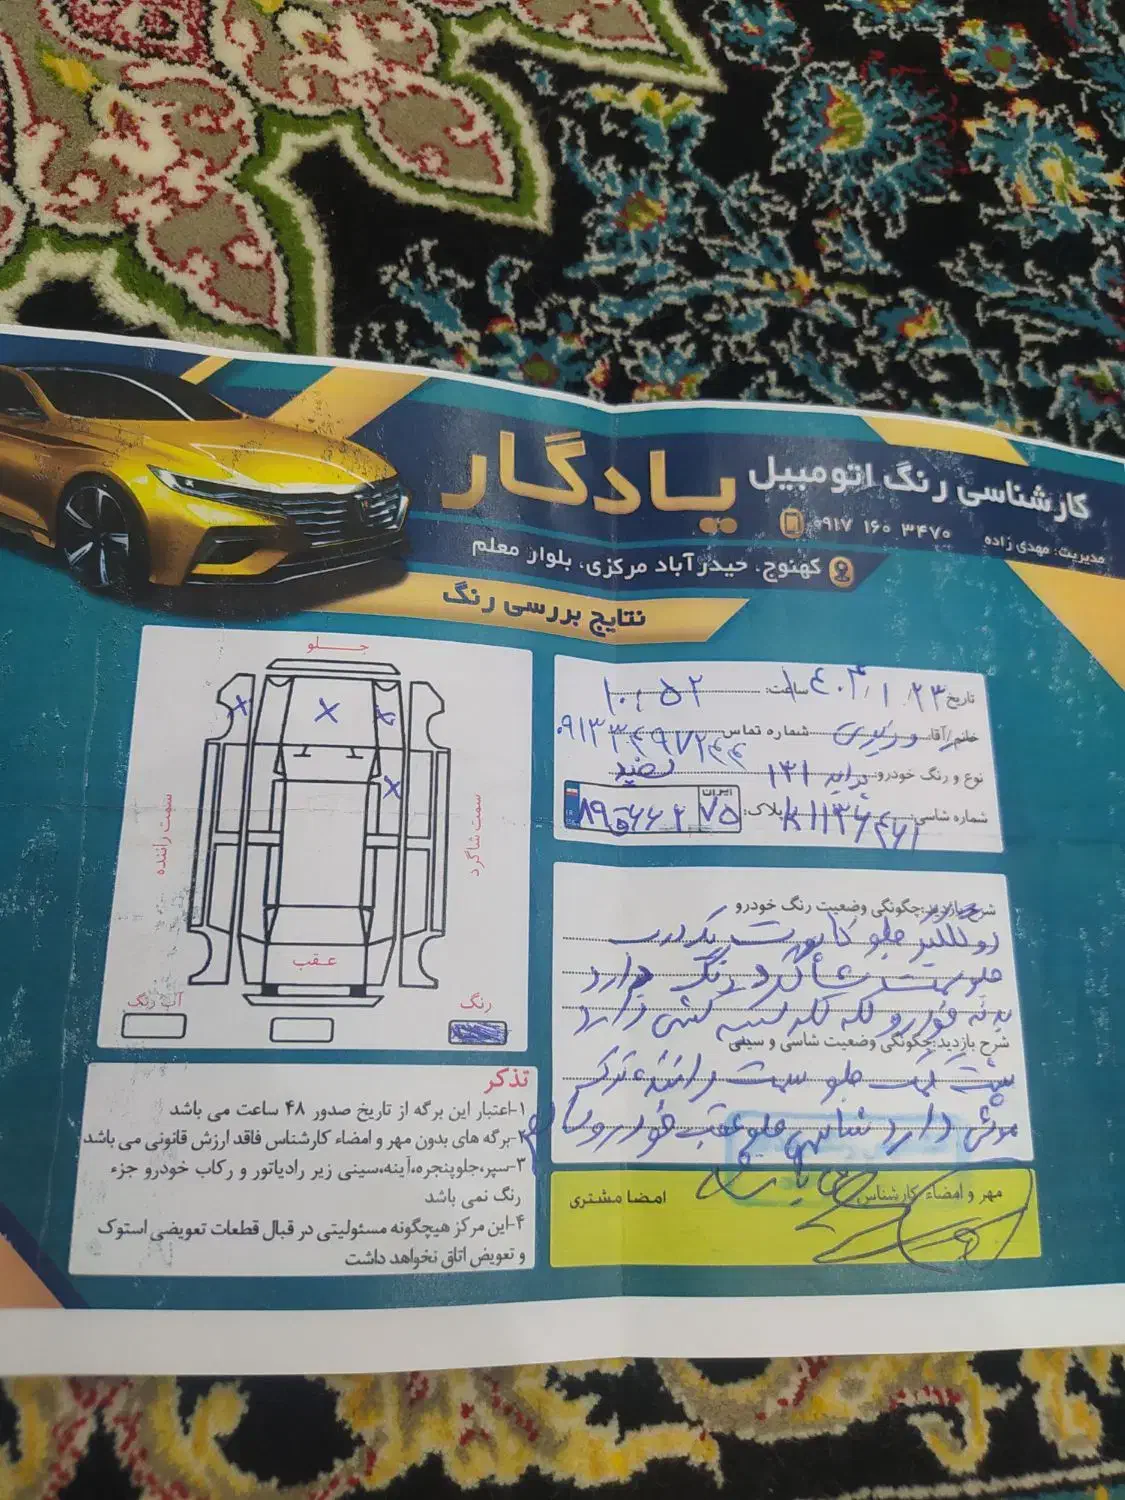 کارشناسی رنگ اتومبیل یادگار
مدیریت: مهدی زاده ۰۹۱۷ ۱۶۰ ۳۴۷۰
کهنوج، حیدرآباد مرکزی، بلوار معلم
نتایج بررسی رنگ
جـلـو
سمت راننده
سمت شاگرد
عـقـب
آب رنگ
رنگ
تاریخ ۱۴۰۴/۱/۲۳ ساعت: ۱۰:۵۲
خانم/آقا شماره تماس
نوع و رنگ خودرو: پراید ۱۳۱ سفید
شماره شاسی: پلاک: ایران ۷۵
شرح بازدید:چگونگی وضعیت رنگ خودرو
دو گلگیر جلو کاپوت یک درب
جلو سمت شاگرد رنگ دارد
بدنه خودرو لکه لکه لیسه گیری دارد
شرح بازدید:چگونگی وضعیت شاسی و سینی
سمت راننده
دارد شاسی جلو عقب خودرو سالم
می باشد
مهر و امضاء کارشناس
امضا مشتری
تذکر
۱-اعتبار این برگه از تاریخ صدور ۴۸ ساعت می باشد
۲-برگه های بدون مهر و امضاء کارشناس فاقد ارزش قانونی می باشد
۳-سپر،جلوپنجره،آینه،سینی زیر رادیاتور و رکاب خودرو جزء
رنگ نمی باشد
۴-این مرکز هیچگونه مسئولیتی در قبال قطعات تعویضی استوک
و تعویض اتاق نخواهد داشت